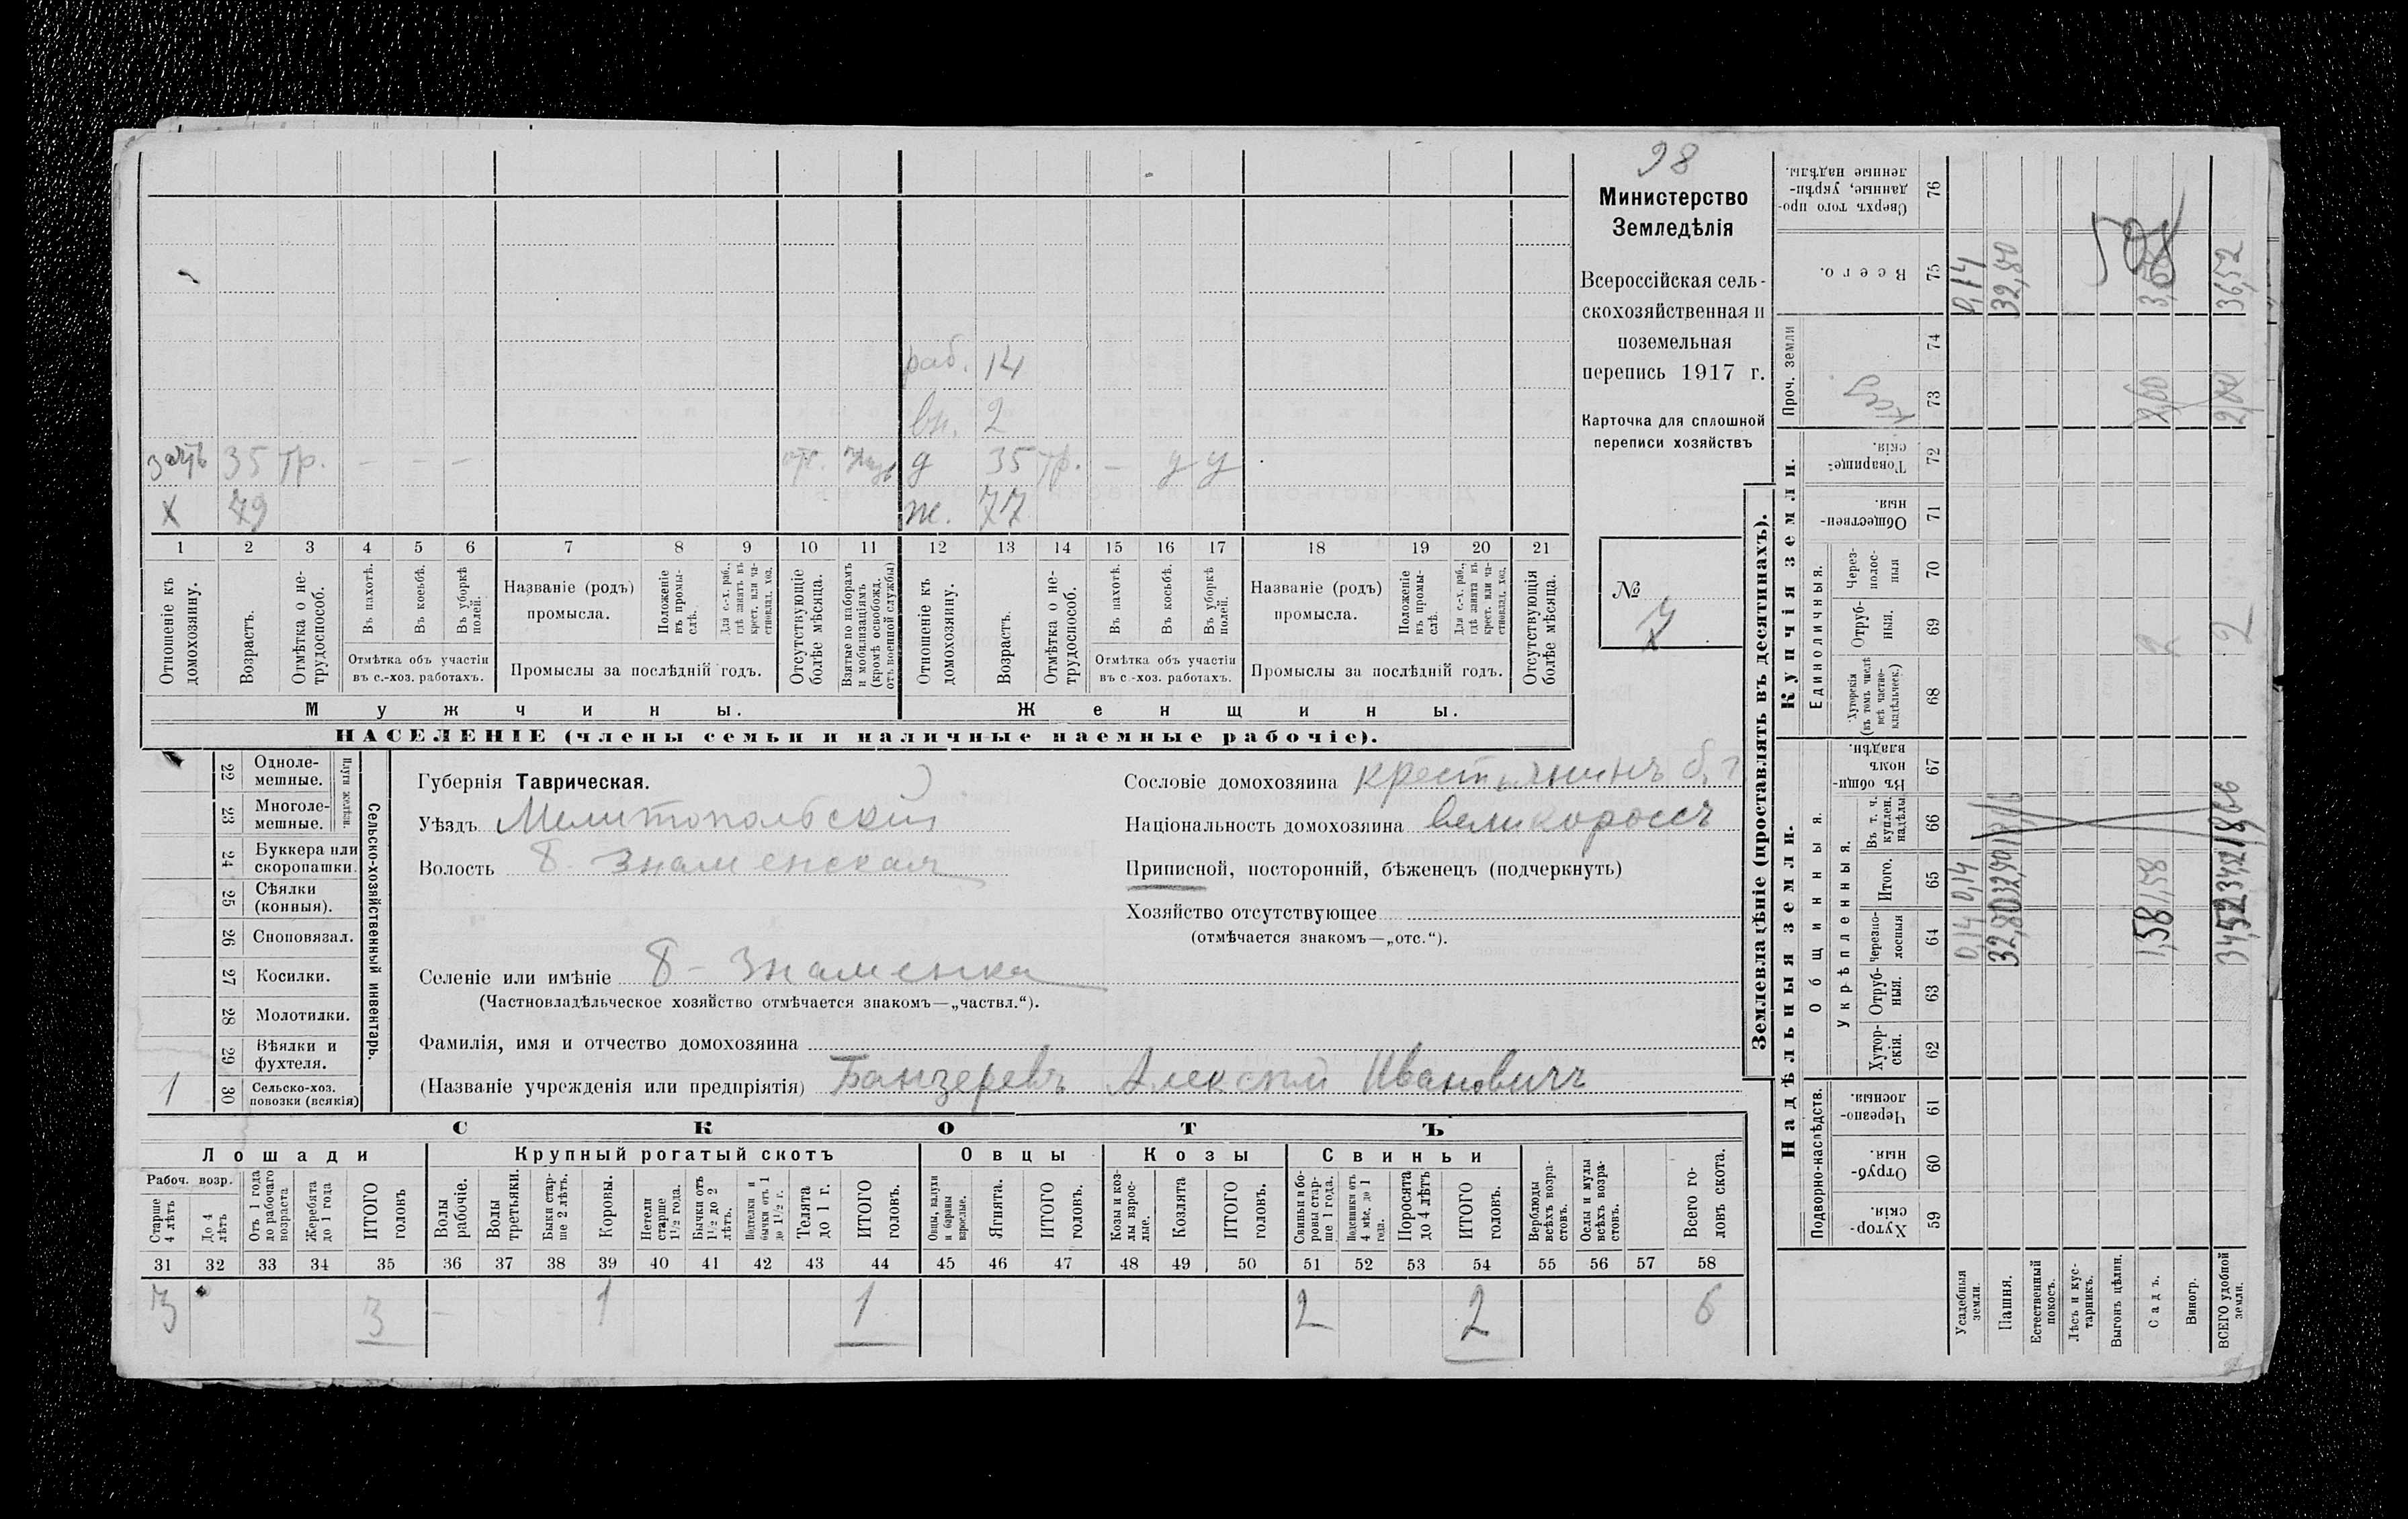 98
Министерство
Земледѣлія
Всероссійская сель-
скохозяйственная и
поземельная
перепись 1917 г.
Карточка для сплошной
переписи хозяйствъ
№
7
раб. 14
вн. 2
зять 35 тр. – – – отс. д 35 тр. – у у
х 79 ж. 77
1 2 3 4 5 6 7 8 9 10 11 12 13 14 15 16 17 18 19 20 21
Отношеніе къ домохозяину.
Возрастъ.
Отмѣтка о не-трудоспособ.
Въ пахотѣ.
Въ косьбѣ.
Въ уборкѣ полей.
Отмѣтка объ участіи
въ с.-хоз. работахъ.
Названіе (родъ)
промысла.
Положеніе въ промы-слѣ.
Для с.-х. раб., гдѣ занятъ въ крест. или ча-стновлад. хоз.
Промыслы за послѣдній годъ.
Отсутствующіе болѣе мѣсяца.
Взятые по наборамъ и мобилизаціямъ (кромѣ освобожд. отъ военной службы)
Отношеніе къ домохозяину.
Возрастъ.
Отмѣтка о не-трудоспособ.
Въ пахотѣ.
Въ косьбѣ.
Въ уборкѣ полей.
Отмѣтка объ участіи
въ с.-хоз. работахъ.
Названіе (родъ)
промысла.
Положеніе въ промы-слѣ.
Для с.-х. раб., гдѣ занята въ крест. или ча-стновлад. хоз.
Промыслы за послѣдній годъ.
Отсутствующія болѣе мѣсяца.
Мужчины.
Женщины.
НАСЕЛЕНІЕ (члены семьи и наличные наемные рабочіе).
22 Одноле-мешные.
23 Многоле-мешные.
Плуги желѣзн.
24 Буккера или скоропашки.
25 Сѣялки (конныя).
26 Сноповязал.
27 Косилки.
28 Молотилки.
29 Вѣялки и фухтеля.
1 30 Сельско-хоз. повозки (всякія)
Сельско-хозяйственный инвентарь.
Губернія Таврическая.
Уѣздъ Мелитопольскій
Волость Б. Знаменская
Селеніе или имѣніе Б-Знаменка
(Частновладѣльческое хозяйство отмѣчается знакомъ—„частвл.“).
Фамилія, имя и отчество домохозяина
(Названіе учрежденія или предпріятія) Банзеревъ Алексѣй Ивановичъ
Сословіе домохозяина крестьянинъ
Національность домохозяина великороссъ
Приписной, посторонній, бѣженецъ (подчеркнуть)
Хозяйство отсутствующее
(отмѣчается знакомъ—„отс.“).
СКОТЪ
Лошади
Крупный рогатый скотъ
Овцы
Козы
Свиньи
Рабоч. возр.
Старше 4 лѣтъ
До 4 лѣтъ
Отъ 1 года до рабочаго возраста
Жеребята до 1 года
ИТОГО головъ
Волы рабочіе.
Волы третьяки.
Быки стар-ше 2 лѣтъ.
Коровы.
Нетели старше 1½ года.
Бычки отъ 1½ до 2 лѣтъ.
Подтелки и бычки отъ 1 до 1½ г.
Телята до 1 г.
ИТОГО головъ.
Овцы, валухи и бараны взрослые.
Ягнята.
ИТОГО головъ.
Козы и коз-лы взрос-лые.
Козлята
ИТОГО головъ.
Свиньи и бо-ровы стар-ше 1 года.
Подсвинки отъ 4 мѣс. до 1 года.
Поросята до 4 лѣтъ
ИТОГО головъ.
Верблюды всѣхъ возра-стовъ.
Ослы и мулы всѣхъ возра-стовъ.
Всего го-ловъ скота.
31 32 33 34 35 36 37 38 39 40 41 42 43 44 45 46 47 48 49 50 51 52 53 54 55 56 57 58
3 3 – – 1 1 2 2 6
Землевладѣніе (проставлять въ десятинахъ).
Надѣльныя земли.
Купчія земли.
Проч. земли
Подворно-наслѣдств.
Общинныя.
Укрѣпленныя.
Единоличныя.
Хутор-скія. 59
Отруб-ныя. 60
Черезпо-лосныя. 61
Хутор-скія. 62
Отруб-ныя. 63
Черезпо-лосныя 64
Итого. 65
Въ т. ч. куплен. надѣлы 66
Въ общин-номъ владѣн. 67
Хуторскія (въ томъ числѣ всѣ частно-владѣльческ.) 68
Отруб-ныя. 69
Через-полос-ныя 70
Обществен-ныя. 71
Товарище-скія. 72
73
74
Всего. 75
Сверхъ того про-данные, укрѣп-ленные надѣлы. 76
Усадебныя земли. 0,14 0,14 0,14
Пашня. 32,80 32,80 32,80
Естественный покосъ.
Лѣсъ и кус-тарникъ.
Выгонъ цѣлин.
Садъ. 1,58 1,58 2
Виногр.
ВСЕГО удобной земли. 34,52 34,52 2 36,52